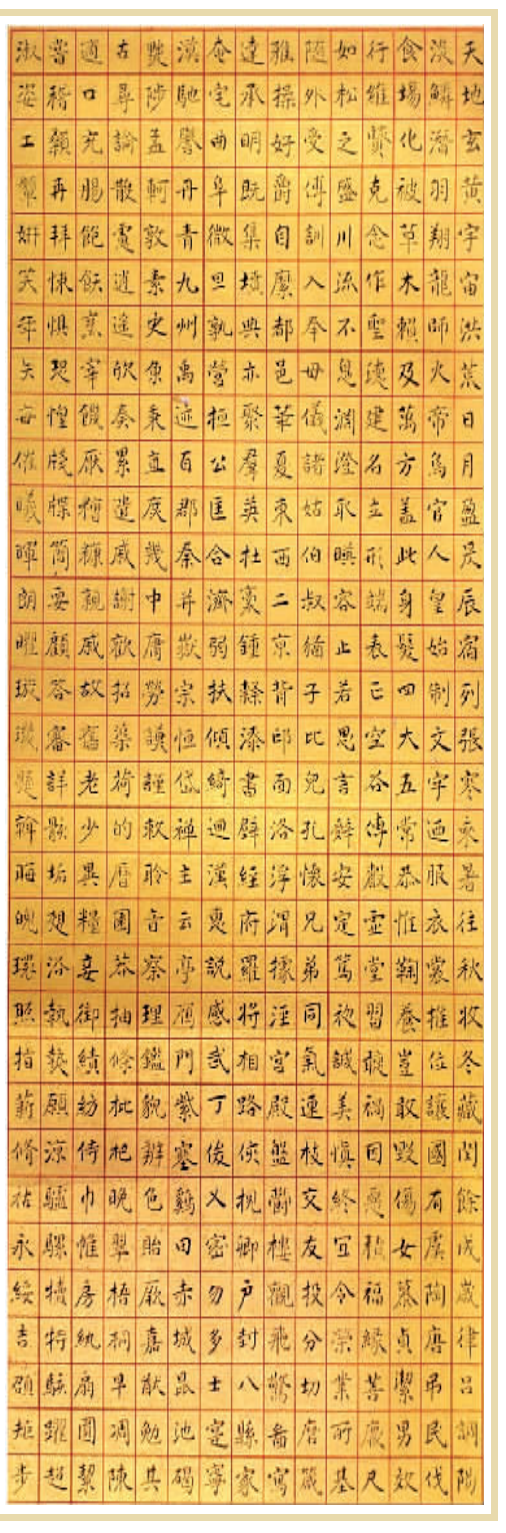 天地玄黃宇宙洪荒日月盈昃辰宿列張寒來暑往秋收冬藏閏餘成歲律呂調陽
淡鱗潛羽翔龍師火帝鳥官人皇始制文字迺服衣裳推位讓國有虞陶唐弔民伐
食場化被草木賴及萬方盖此身髮四大五常恭惟鞠養豈敢毀傷女慕貞潔男效
行維賢克念作聖德建名立形端表正空谷傳聲虛堂習聽禍因惡積福緣善慶尺
如松之盛川流不息淵澄取暎容止若思言辭安定篤初誠美慎終宜令榮業所基
隨外受傅訓入奉母儀諸姑伯叔猶子比兒孔懷兄弟同氣連枝交友投分切磨箴
雅操好爵自縻都邑華夏東西二京背邙面洛浮渭據涇宮殿盤鬱樓觀飛驚圖寫
達承明既集墳典亦聚羣英杜稾鍾隸漆書壁經府羅將相路俠槐卿戶封八縣家
奄宅曲阜微旦孰營桓公匡合濟弱扶傾綺迴漢惠說感武丁俊乂密勿多士寔寧
漠馳譽丹青九州禹迹百郡秦并嶽宗恒岱禪主云亭雁門紫塞雞田赤城昆池碣
黜陟孟軻敦素史魚秉直庶幾中庸勞謙謹敕聆音察理鑑貌辨色貽厥嘉猷勉其
古尋論散慮逍遙欣奏累遣慼謝歡招渠荷的歷園莽抽條枇杷晚翠梧桐早凋陳
適口充腸飽飫烹宰饑厭糟糠親戚故舊老少異糧妾御績紡侍巾帷房紈扇圓絜
嘗稽顙再拜悚懼恐惶牋牒簡要顧答審詳骸垢想浴執熱願涼驢騾犢特駭躍超
淑姿工顰妍笑年矢每催曦暉朗曜璇璣懸斡晦魄環照指薪脩祜永綏吉劭矩步